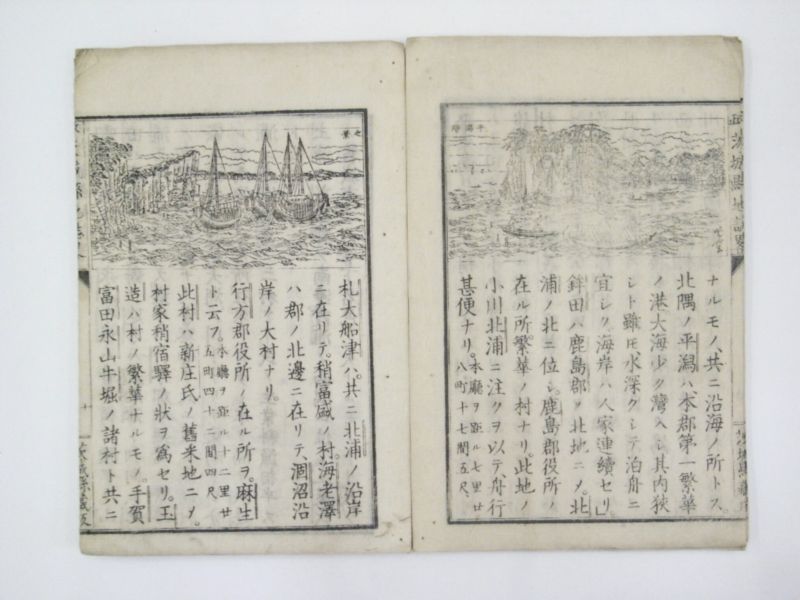 ナルモノ、共ニ沿海ノ所トス、
北隅ノ平潟ハ、本郡第一繁華
ノ港大海少ク灣入シ其内狹
シト雖モ水深クシテ泊舟ニ
宜シク、海岸ハ人家連續セリ」
鉾田ハ鹿島郡ノ北地ニメ、北
浦ノ北ニ位シ、鹿島郡役所ノ
在ル所、繁華ノ村ナリ。此地ノ
小川北浦ニ注クヲ以テ舟行
甚便ナリ。本廳ヲ距ル七里廿
八町十七間五尺、
札大船津ハ、共ニ北浦ノ沿岸
ニ在リテ。稍富盛ノ村。海老澤
ハ郡ノ北邊ニ在リテ、涸沼沿
岸ノ大村ナリ。
行方郡役所ノ在ル所ヲ。麻生
ト云フ。本廳ヲ距ル十二里廿
五町四十二間四尺、
此村ハ新庄氏ノ舊釆地ニメ。
村家稍宿驛ノ狀ヲ爲セリ。玉
造ハ村ノ繁華ナルモノ。手賀
富田永山牛堀ノ諸村ト共ニ